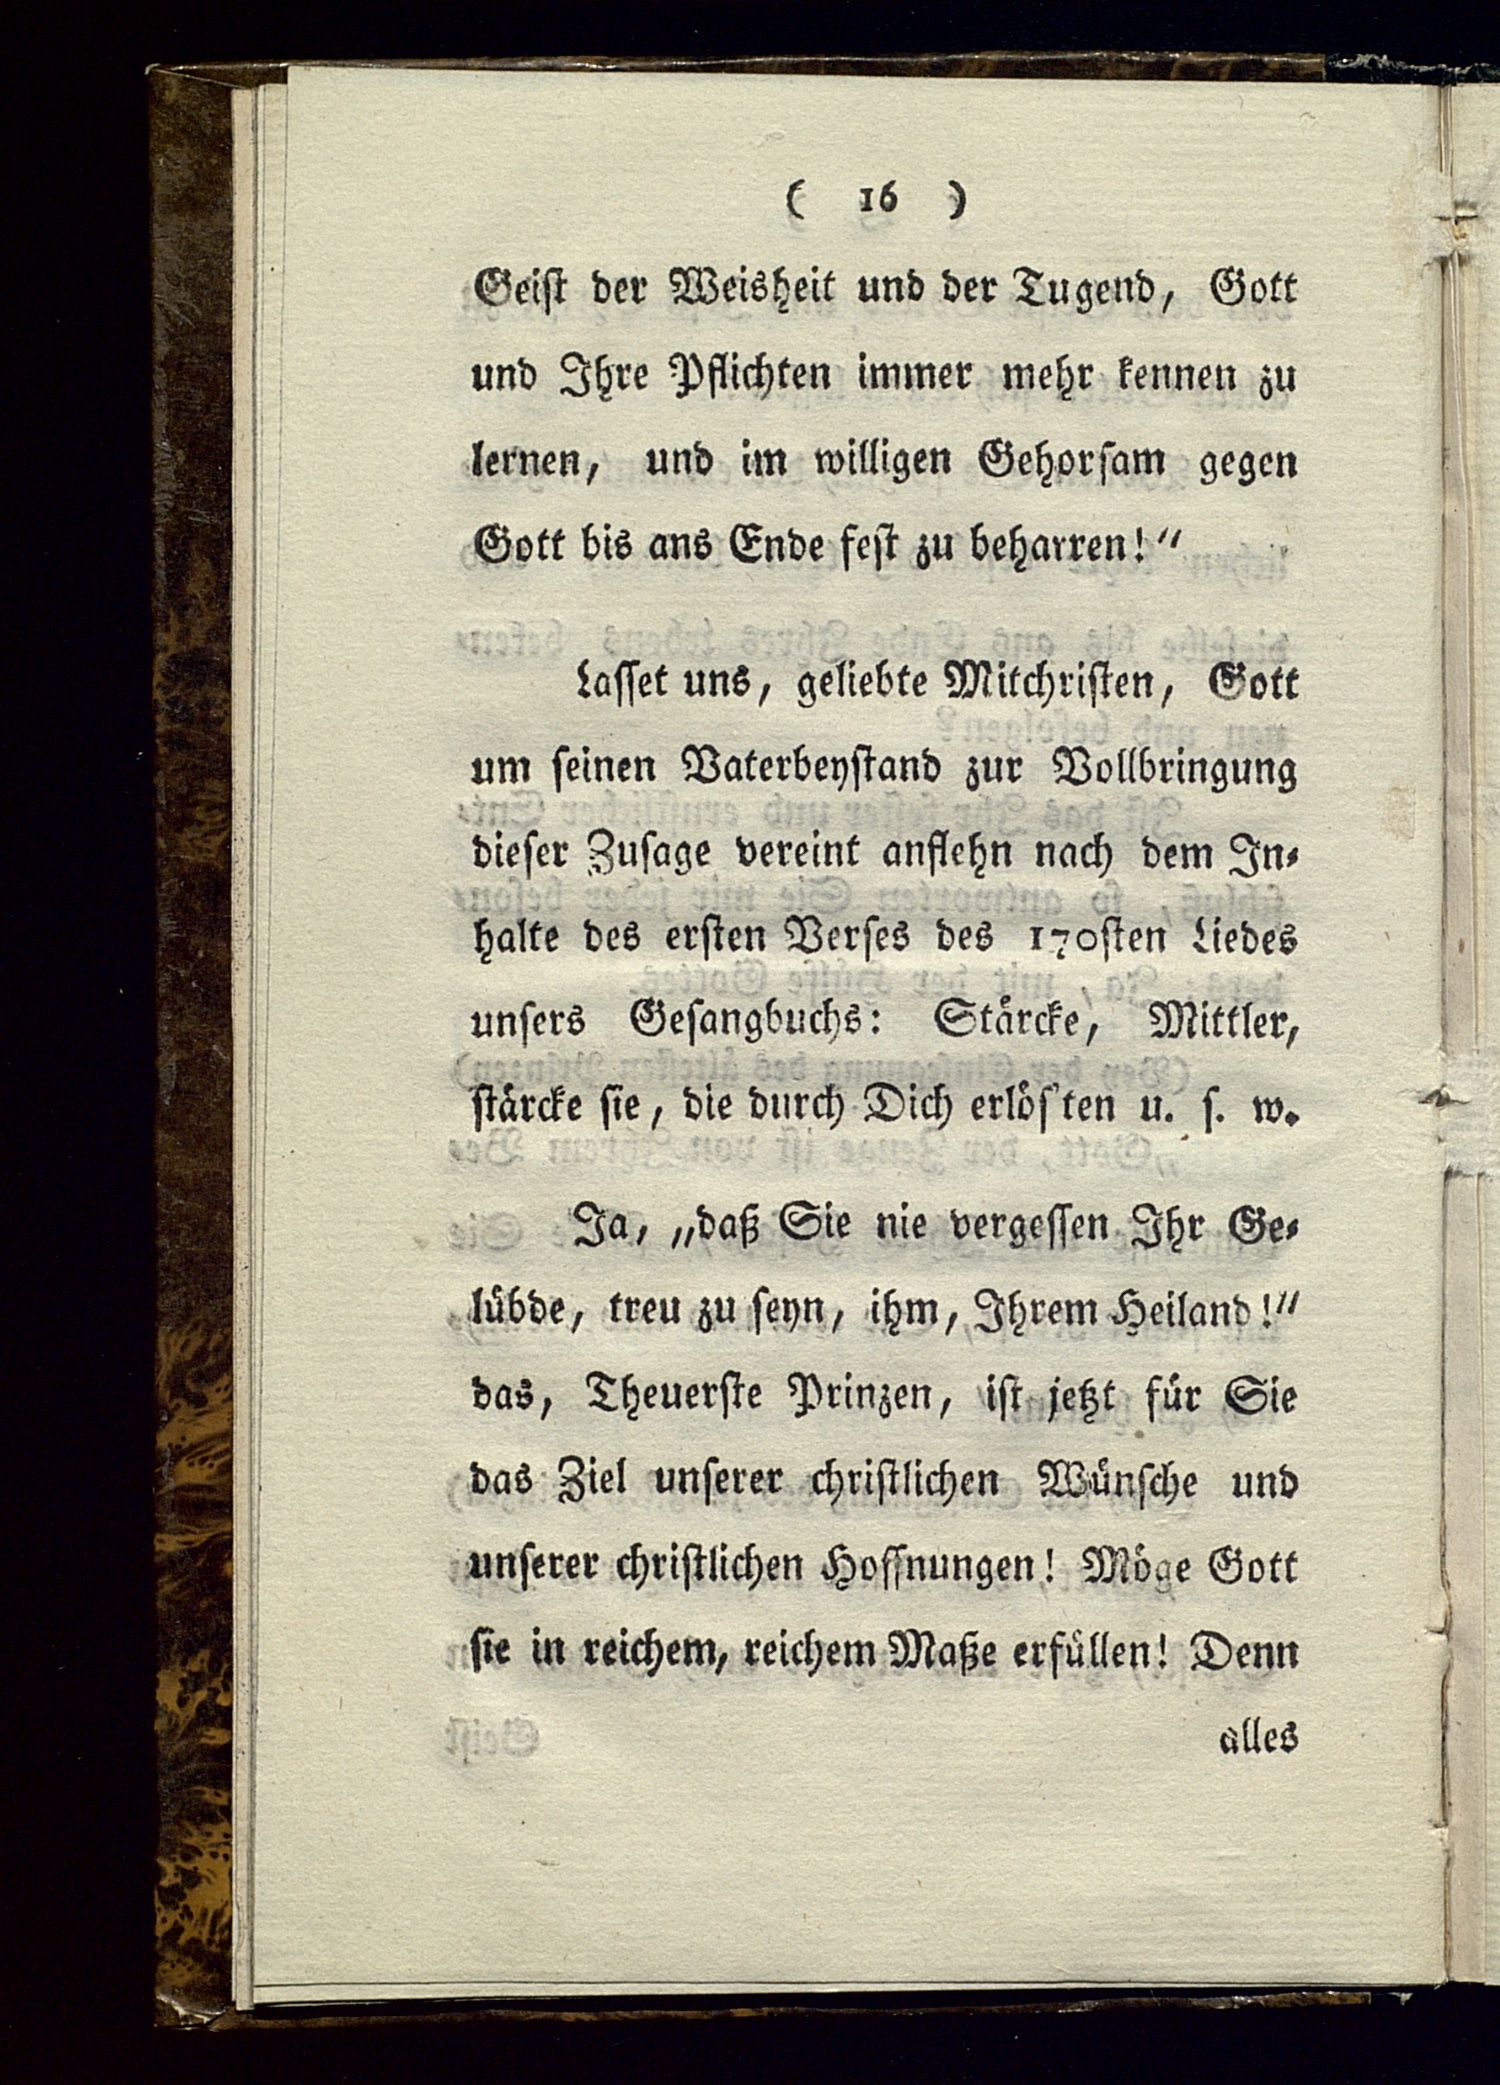 ( 16 )
Geist der Weisheit und der Tugend, Gott
und Ihre Pflichten immer mehr kennen zu
lernen, und im willigen Gehorsam gegen
Gott bis ans Ende fest zu beharren!“
Lasset uns, geliebte Mitchristen, Gott
um seinen Vaterbeystand zur Vollbringung
dieser Zusage vereint anflehn nach dem In-
halte des ersten Verses des 170sten Liedes
unsers Gesangbuchs: Stärcke, Mittler,
stärcke sie, die durch Dich erlös'ten u. s. w.
Ja, „daß Sie nie vergessen Ihr Ge-
lübde, treu zu seyn, ihm, Ihrem Heiland!“
das, Theuerste Prinzen, ist jetzt für Sie
das Ziel unserer christlichen Wünsche und
unserer christlichen Hoffnungen! Möge Gott
sie in reichem, reichem Maße erfüllen! Denn
alles